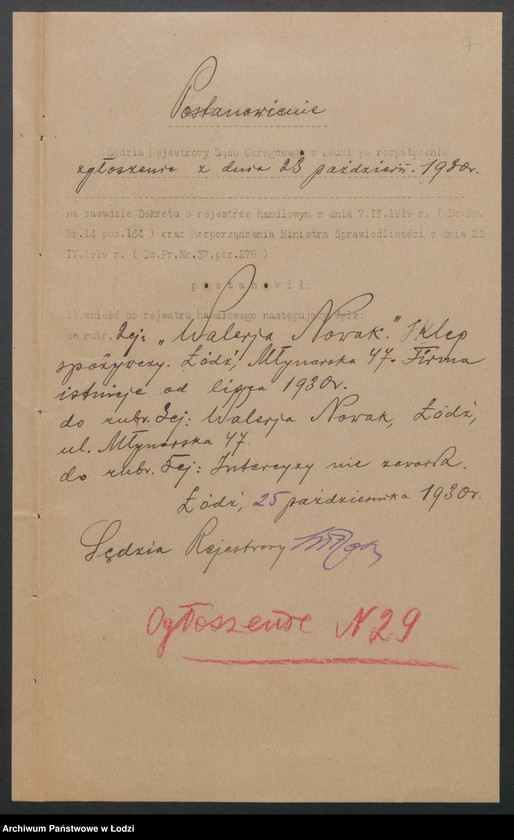 7
Postanowienie
Sędzia Rejestrowy Sądu Okręgowego w Łodzi po rozpatrzeniu
zgłoszenia z dnia 23 paździer. 1930r.
na zasadzie Dekretu o rejestrze handlowym z dnia 7.II.1919 r. ( Dz.Pr.
Nr.14 poz.164 ) oraz Rozporządzenia Ministra Sprawiedliwości z dnia 22
IV.1919 r. ( Dz.Pr.Nr.37.poz.278 )
postanowił:
1) wnieść do rejestru handlowego następujący wpis:
na rubr. 2ej: „Walerja Nowak." Sklep
spożywczy. Łódź, Młynarska 47. Firma
istnieje od lipca 1930r.
do rubr. 3ej: Walerja Nowak, Łódź,
ul. Młynarska 47.
do rubr. 5ej: Intercyzy nie zawarła.
Łódź, 25 października 1930r.
Sędzia Rejestrowy
Ogłoszenie N 29
Archiwum Państwowe w Łodzi